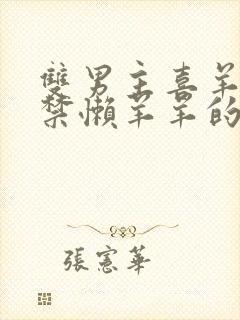 雙男主喜羊
禁懶羊羊的
張憲華